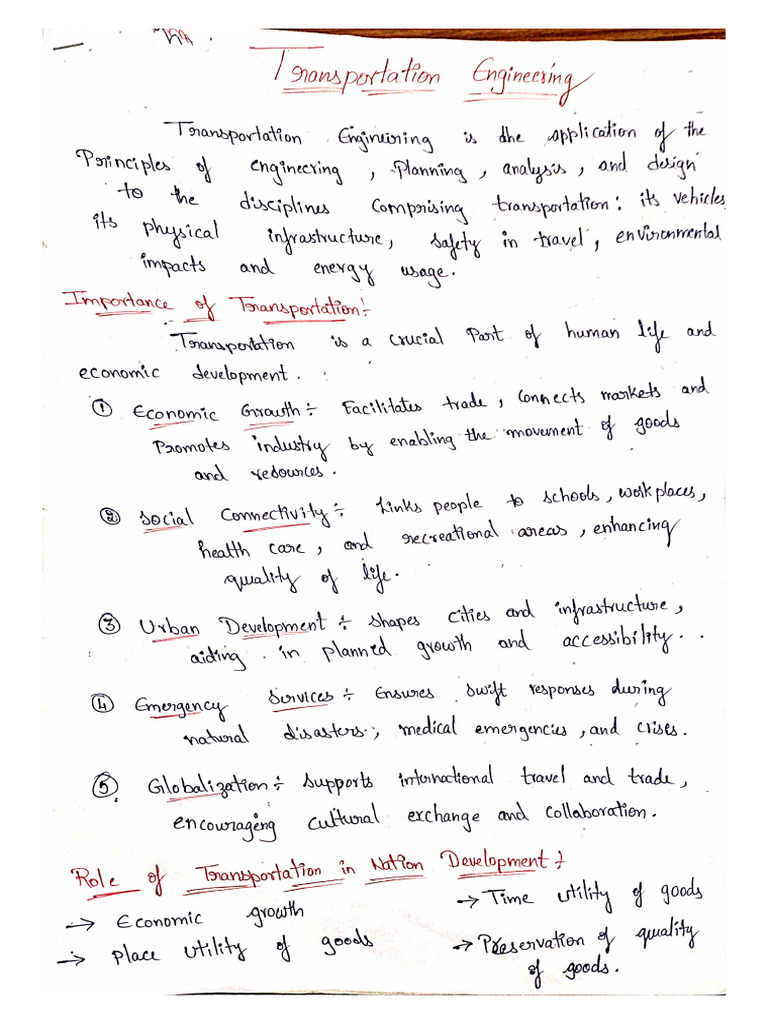 Transportation Engineering
Transportation Engineering is the application of the
Principles of engineering, Planning, analysis, and design
to the disciplines comprising transportation: its vehicles
its physical infrastructure, safety in travel, environmental
impacts and energy usage.
Importance of Transportation:-
Transportation is a crucial Part of human life and
economic development.
① Economic Growth:- Facilitates trade, connects markets and
Promotes industry by enabling the movement of goods
and resources.
② Social Connectivity:- Links people to schools, workplaces,
health care, and recreational areas, enhancing
quality of life.
③ Urban Development:- shapes cities and infrastructure,
aiding in planned growth and accessibility.
④ Emergency Services:- Ensures swift responses during
natural disasters, medical emergencies, and crises.
⑤ Globalization:- Supports international travel and trade,
encouraging cultural exchange and collaboration.
Role of Transportation in Nation Development:-
→ Economic growth
→ Place utility of goods
→ Time utility of goods
→ Preservation of quality
of goods.